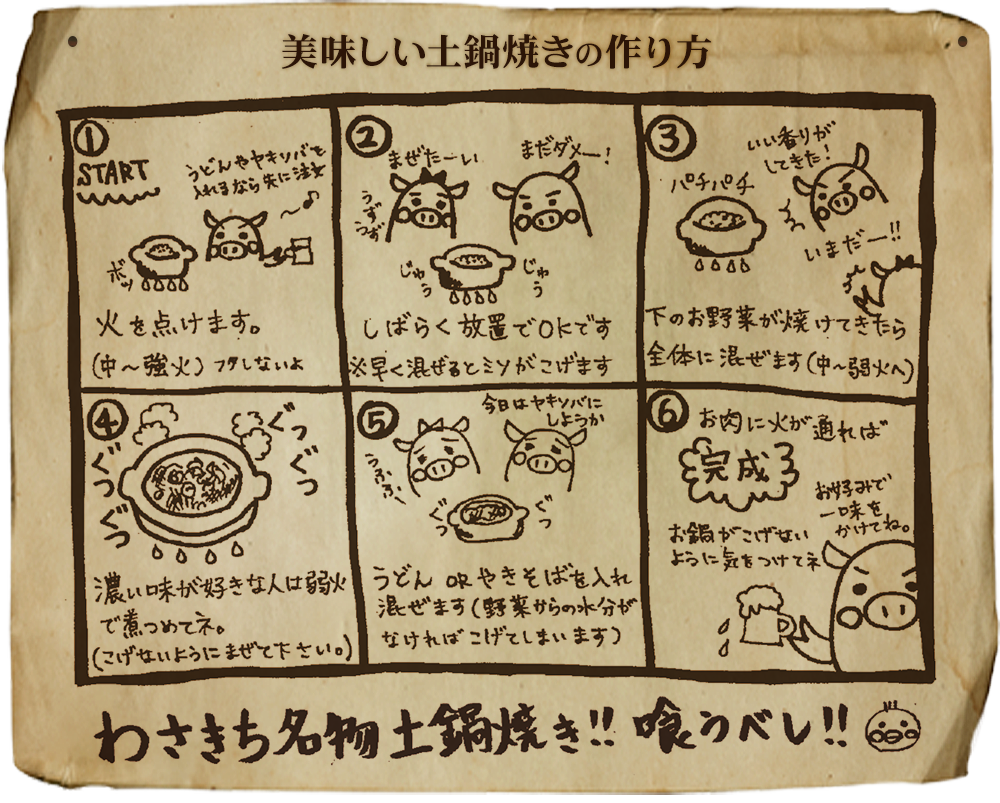 美味しい土鍋焼きの作り方
①
START
うどんやヤキソバを
入れるなら先に注文
ボッ
火を点けます。
(中〜強火) フタしないよ
②
まぜたーい
まだダメー!
うずうず
じゅう
じゅう
しばらく放置でOKです
※早く混ぜるとミソがこげます
③
いい香りが
してきた!
パチパチ
いまだー!!
下のお野菜が焼けてきたら
全体に混ぜます(中〜弱火へ)
④
ぐつぐつ
ぐつぐつ
濃い味が好きな人は弱火
で煮つめてネ。
(こげないようにまぜて下さい。)
⑤
今日はヤキソバに
しようか
うふふ〜
ぐつ
ぐつ
うどん ORやきそばを入れ
混ぜます(野菜からの水分が
なければこげてしまいます)
⑥
お肉に火が通れば
完成
お好みで
一味を
かけてね。
お鍋がこげない
ように気をつけてネ
わさきち名物土鍋焼き!! 喰うべし!!